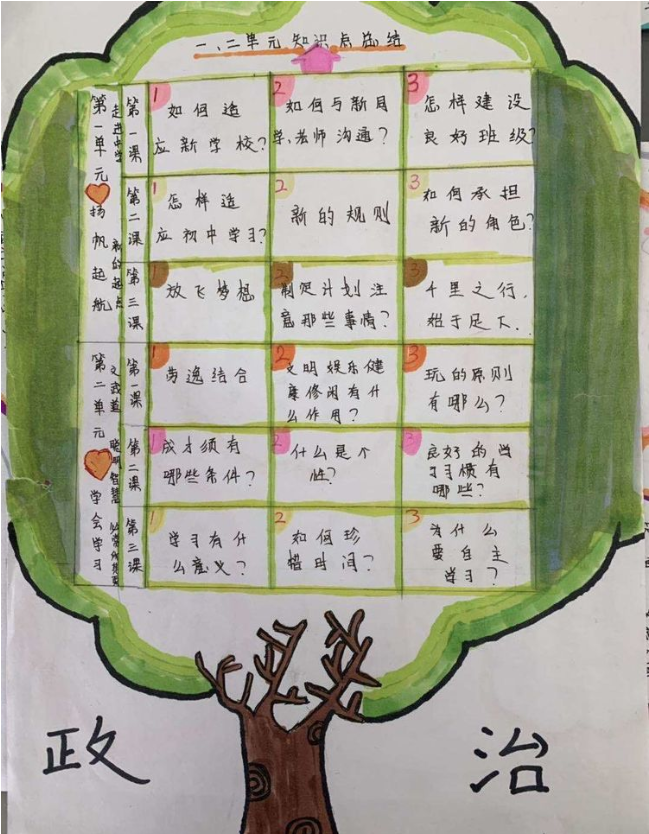 一、二单元知识点总结
第一单元 扬帆起航
走进中学
第一课
1
如何适
应新学校?
2
如何与新同
学、老师沟通?
3
怎样建设
良好班级?
新的起点
第二课
1
怎样适
应初中学习?
2
新的规则
3
如何承担
新的角色?
第三课
放飞梦想
制定计划注
意那些事情?
千里之行,
始于足下..
第二单元 学会学习
第一课
1
劳逸结合
2
文明娱乐健
康休闲有什
么作用?
3
玩的原则
有哪么?
聪明智慧
第二课
1
成才须有
哪些条件?
2
什么是个
性?
3
良好的学
习习惯有
哪些?
第三课
1
学习有什
么意义?
2
如何珍
惜时间?
3
为什么
要自主
学习?
政治